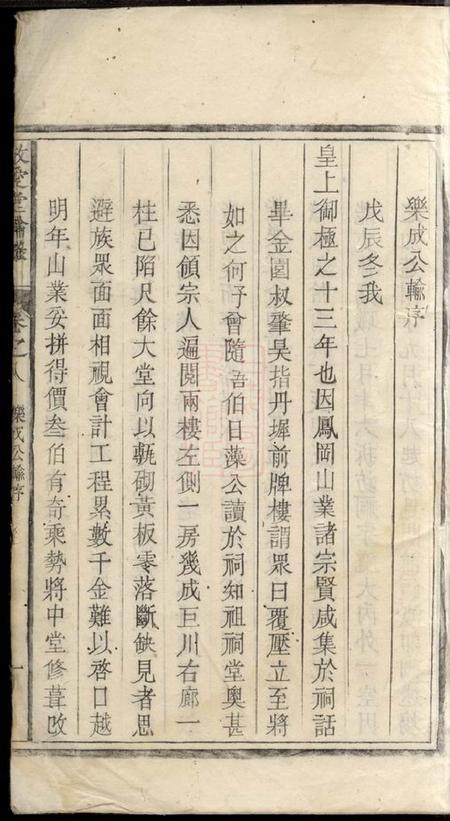 樂成公輸序
戊辰冬我
皇上御極之十三年也因鳳岡山業諸宗賢咸集於祠話
畢金園叔肇昊指丹墀前牌樓謂眾曰覆壓立至將
如之何予曾隨吾伯日藻公讀於祠知祖祠堂奧甚
悉因領宗人遍閱兩樓左側一房幾成巨川右廊一
柱已陷尺餘大堂向以甎砌黃板零落斷缺見者思
避族眾面面相視會計工程累數千金難以啓口越
明年山業妥拼得價叁伯有奇乘勢將中堂修葺改
卷之八
樂成公輸序
一